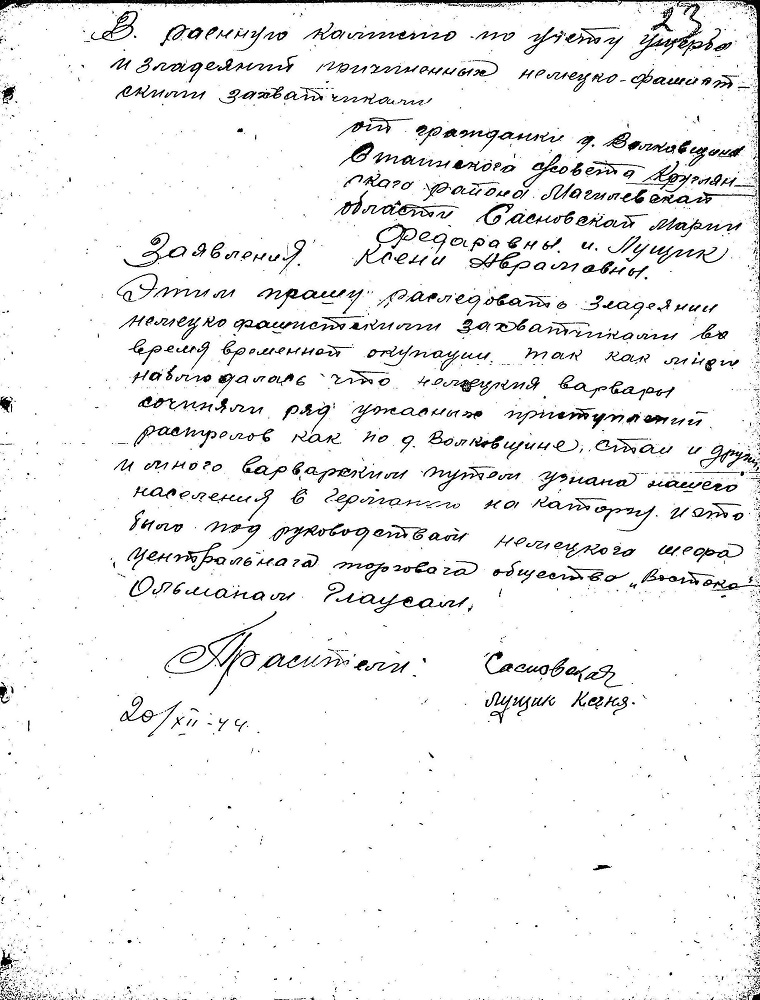 23
В. раенную камисию по учету ущерба
и зладеяний причиненных немецко-фашист-
скими захватчиками
от гражданки д. Волковщина
с/совета Круглян-
скаго района Магилевскай
области Сасновскай Марии
Федаравны. и. Лущик
Заявления. Ксени Аврамовны.
Этим прашу раследовать зладеянии
немецко фашисткими захватчиками во
время временной окупации. так как мною
наблюдалась что немецкия варвары
сочиняли ряд ужасных приступлений
растрелов как по д. Волковщине, Стаи и други,
и много варварским путем угнана нашего
населения в Германию на каторгу. и это
было под руководствам немецкого шефа
центральнага торговага общества „Востока"
Ольманам Глаусам.
Прасители: Сасновская
Лущик Ксеня.
20/XII-44.